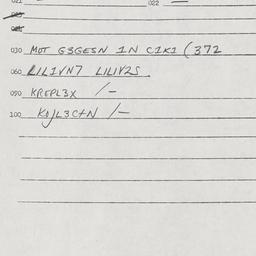 021 022
030 MOT G3GESN IN C1K1 (372
060 LILIVN7 LILIV2S.
090 KREPL3X /-
100 KOJL3C+N /-